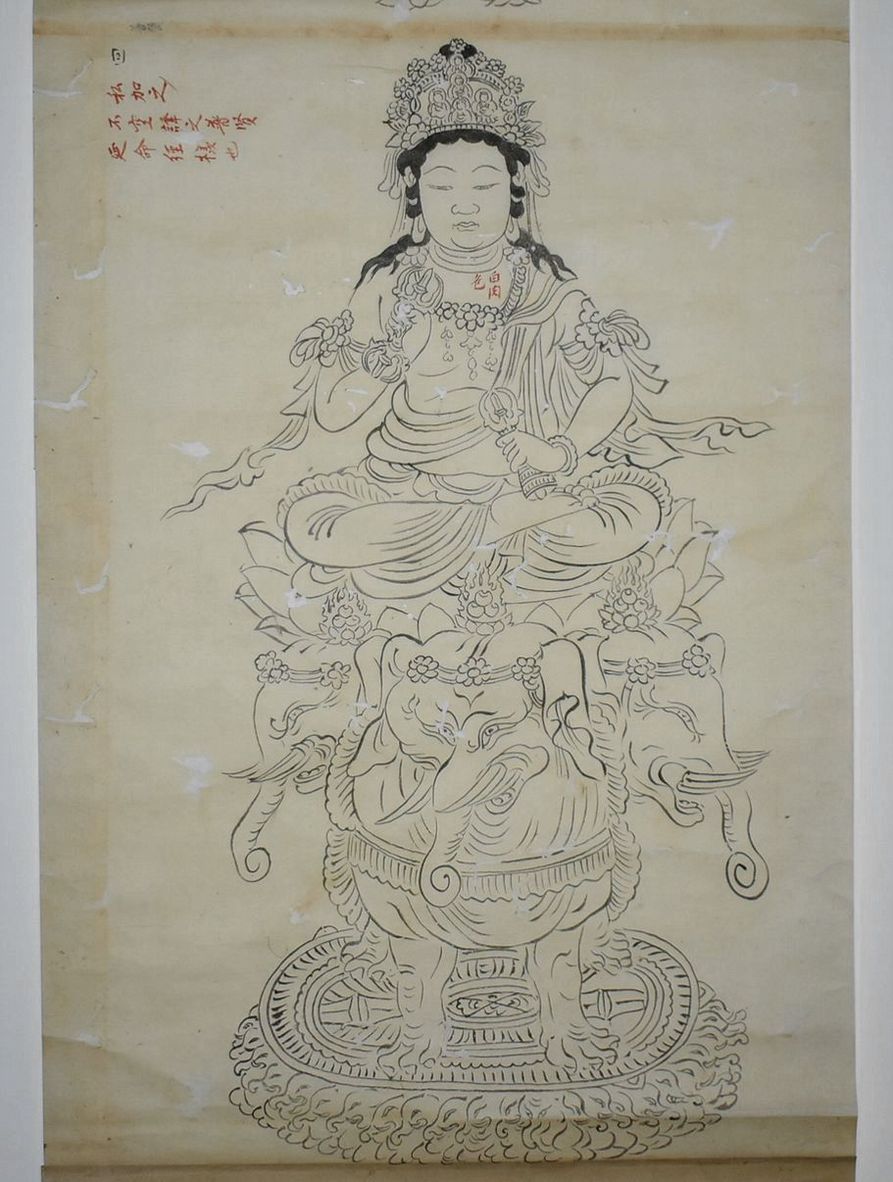 私加之
不空譯文普賢
延命経様也
白肉
色